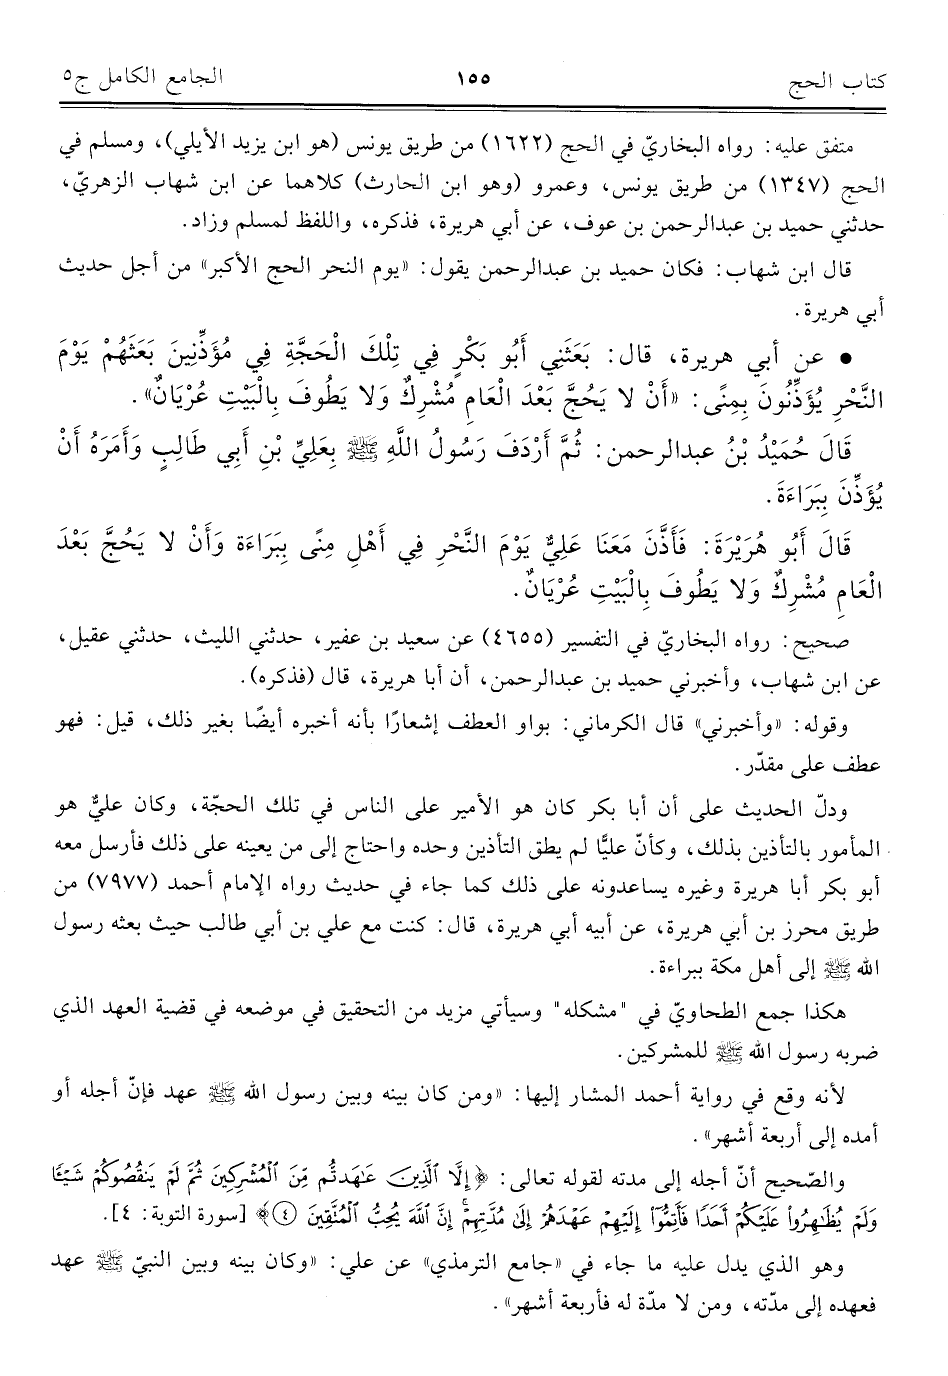 كتاب الحج ١٥٥ الجامع الكامل ج٥
متفق عليه: رواه البخاريّ في الحج (١٦٢٢) من طريق يونس (هو ابن يزيد الأيلي)، ومسلم في
الحج (١٣٤٧) من طريق يونس، وعمرو (وهو ابن الحارث) كلاهما عن ابن شهاب الزهريّ،
حدثني حميد بن عبدالرحمن بن عوف، عن أبي هريرة، فذكره، واللفظ لمسلم وزاد.
قال ابن شهاب: فكان حميد بن عبدالرحمن يقول: «يوم النحر الحج الأكبر» من أجل حديث
أبي هريرة.
● عن أبي هريرة، قال: بَعَثَنِي أَبُو بَكْرٍ فِي تِلْكَ الْحَجَّةِ فِي مُؤَذِّنِينَ بَعَثَهُمْ يَوْمَ
النَّحْرِ يُؤَذِّنُونَ بِمِنًى: «أَنْ لا يَحُجَّ بَعْدَ الْعَامِ مُشْرِكٌ وَلا يَطُوفَ بِالْبَيْتِ عُرْيَانٌ».
قَالَ حُمَيْدُ بْنُ عبدالرحمن: ثُمَّ أَرْدَفَ رَسُولُ اللَّهِ ﷺ بِعَلِيِّ بْنِ أَبِي طَالِبٍ وَأَمَرَهُ أَنْ
يُؤَذِّنَ بِبَرَاءَةَ.
قَالَ أَبُو هُرَيْرَةَ: فَأَذَّنَ مَعَنَا عَلِيٌّ يَوْمَ النَّحْرِ فِي أَهْلِ مِنًى بِبَرَاءَة وَأَنْ لا يَحُجَّ بَعْدَ
الْعَامِ مُشْرِكٌ وَلا يَطُوفَ بِالْبَيْتِ عُرْيَانٌ.
صحيح: رواه البخاريّ في التفسير (٤٦٥٥) عن سعيد بن عفير، حدثني الليث، حدثني عقيل،
عن ابن شهاب، وأخبرني حميد بن عبدالرحمن، أن أبا هريرة، قال (فذكره).
وقوله: «وأخبرني» قال الكرماني: بواو العطف إشعارًا بأنه أخبره أيضًا بغير ذلك، قيل: فهو
عطف على مقدّر.
ودلّ الحديث على أن أبا بكر كان هو الأمير على الناس في تلك الحجّة، وكان عليٌّ هو
المأمور بالتأذين بذلك، وكأنّ عليًّا لم يطق التأذين وحده واحتاج إلى من يعينه على ذلك فأرسل معه
أبو بكر أبا هريرة وغيره يساعدونه على ذلك كما جاء في حديث رواه الإمام أحمد (٧٩٧٧) من
طريق محرز بن أبي هريرة، عن أبيه أبي هريرة، قال: كنت مع علي بن أبي طالب حيث بعثه رسول
الله ﷺ إلى أهل مكة ببراءة.
هكذا جمع الطحاويّ في "مشكله" وسيأتي مزيد من التحقيق في موضعه في قضية العهد الذي
ضربه رسول الله ﷺ للمشركين.
لأنه وقع في رواية أحمد المشار إليها: «ومن كان بينه وبين رسول الله ﷺ عهد فإنّ أجله أو
أمده إلى أربعة أشهر».
والصّحيح أنّ أجله إلى مدته لقوله تعالى: ﴿إِلَّا ٱلَّذِينَ عَٰهَدتُّم مِّنَ ٱلْمُشْرِكِينَ ثُمَّ لَمْ يَنقُصُوكُمْ شَيْـًٔا
وَلَمْ يُظَٰهِرُوا۟ عَلَيْكُمْ أَحَدًا فَأَتِمُّوٓا۟ إِلَيْهِمْ عَهْدَهُمْ إِلَىٰ مُدَّتِهِمْ ۚ إِنَّ ٱللَّهَ يُحِبُّ ٱلْمُتَّقِينَ ﴿٤﴾﴾ [سورة التوبة: ٤].
وهو الذي يدل عليه ما جاء في «جامع الترمذي» عن علي: «وكان بينه وبين النبيّ ﷺ عهد
فعهده إلى مدّته، ومن لا مدّة له فأربعة أشهر».